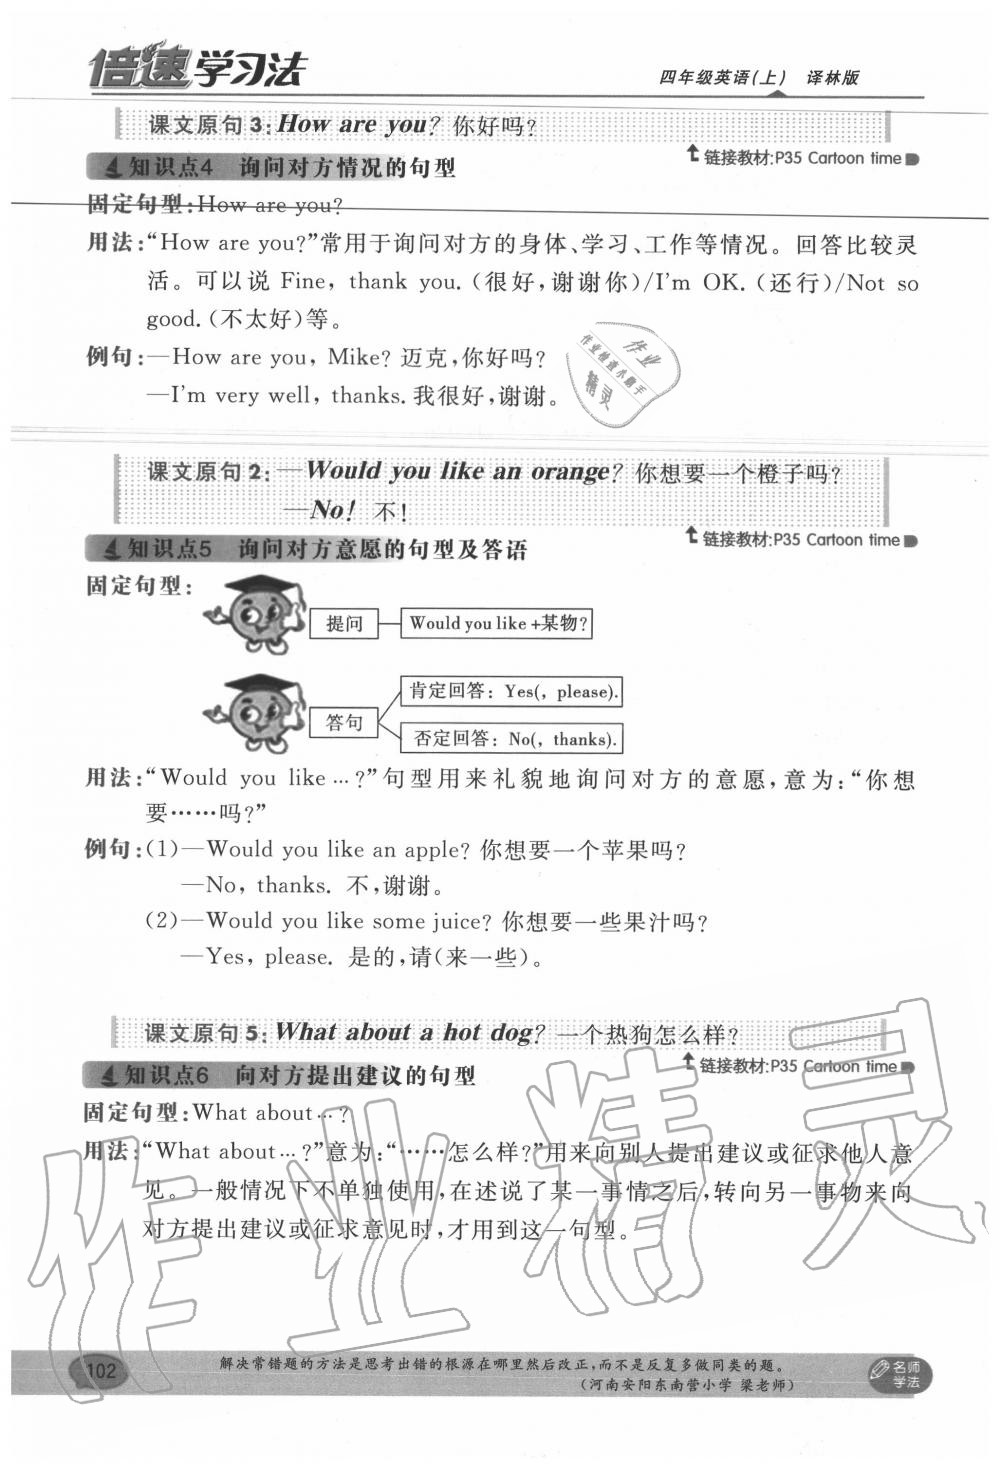 倍速学习法
四年级英语(上) 译林版
课文原句3:How are you? 你好吗?
链接教材:P35 Cartoon time
知识点4 询问对方情况的句型
固定句型:How are you?
用法:“How are you?”常用于询问对方的身体、学习、工作等情况。回答比较灵
活。可以说 Fine, thank you.(很好,谢谢你)/I'm OK.(还行)/Not so
good.(不太好)等。
例句:—How are you, Mike? 迈克,你好吗?
—I'm very well, thanks.我很好,谢谢。
作业
作业检查小助手
精灵
课文原句2:—Would you like an orange? 你想要一个橙子吗?
—No! 不!
链接教材:P35 Cartoon time
知识点5 询问对方意愿的句型及答语
固定句型:
提问
Would you like +某物?
肯定回答: Yes(, please).
答句
否定回答: No(, thanks).
用法:“Would you like …?”句型用来礼貌地询问对方的意愿,意为:“你想
要……吗?”
例句:(1)—Would you like an apple? 你想要一个苹果吗?
—No, thanks. 不,谢谢。
(2)—Would you like some juice? 你想要一些果汁吗?
—Yes, please. 是的,请(来一些)。
课文原句5:What about a hot dog? 一个热狗怎么样?
链接教材:P35 Cartoon time
知识点6 向对方提出建议的句型
固定句型:What about…?
用法:“What about…?”意为:“……怎么样?”用来向别人提出建议或征求他人意
见。一般情况下不单独使用,在述说了某一事情之后,转向另一事物来向
对方提出建议或征求意见时,才用到这一句型。
作业精灵
102
解决常错题的方法是思考出错的根源在哪里然后改正,而不是反复多做同类的题。
(河南安阳东南营小学 梁老师)
名师
学法